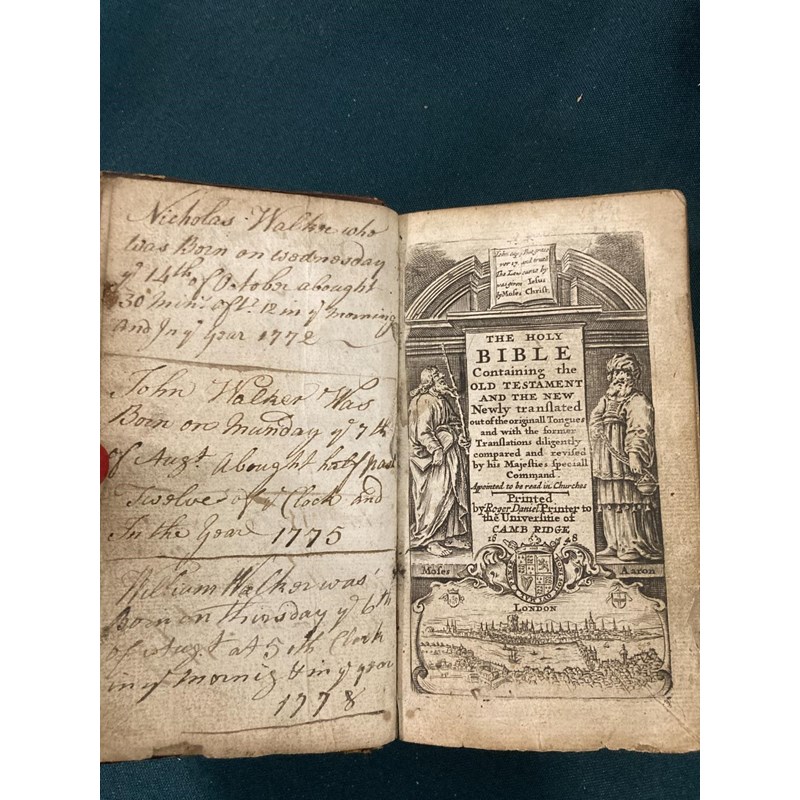 Nicholas Walker who
was Born on wednesday
yᵉ 14th of October abought
30 Minᵗ aftʳ 12 in yᵉ morning
and In yᵉ year 1772
John Walker Was
Born on Munday yᵉ 7th
of Augᵗ abought half past
Twelve of Clock and
In the Year 1775
William Walker was
Born on Thirsday yᵉ 6th
of Augt at 5 oth Clock
in yᵉ Mornig & in yᵉ year
1778
John
ver 17
The Law
by Moses
grace
and truth
by Iesus
Christ.
THE HOLY
BIBLE
Containing the
OLD TESTAMENT
AND THE NEW
Newly tranſlated
out of the originall Tongues
and with the former
Tranſlations diligently
compared and revised
by his Majeſties ſpeciall
Command.
Apointed to be read in Churches
Printed
by Roger Daniel Printer to
the Univerſitie of
CAMBRIDGE
1648
Moſes
Aaron
LONDON